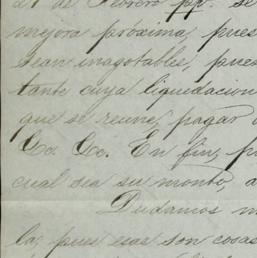 de Febrero pp. se
mejora próxima, pues
sean inagotables, pues
tante cuya liquidacion
que se reune, pagar
&a. &a. En fin, p
cual sea su monto, a
Dudamos m
la, pues esas son cosas